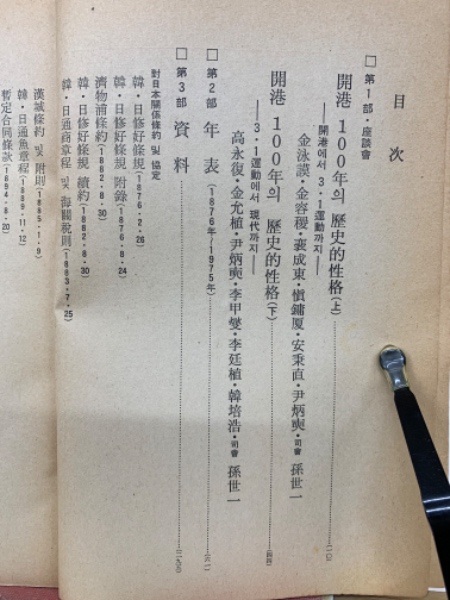 目 次
□ 第1部・座談會
開港 100年의 歷史的性格(上)……(一〇)
──開港에서 3・1運動까지──
金泳謨・金容稷・裵成東・愼鏞厦・安秉直・尹炳奭・司會 孫世一
開港 100年의 歷史的性格(下)……(四四)
──3・1運動에서 現代까지──
高永復・金允植・尹炳奭・李甲燮・李廷植・韓培浩・司會 孫世一
□ 第2部 年 表(1876年~1975年)
□ 第3部 資 料
對日本關係條約 및 協定
韓・日修好條規(1876・2・26)
韓・日修好條規 附錄(1876・8・24)
濟物浦條約(1882・8・30)
韓・日修好條規 續約(1882・8・30)
韓・日通商章程 및 海關稅則(1883・7・25)
漢城條約 및 附則(1885・1・9)
韓・日通漁章程(1889・11・12)
暫定合同條款(1894・8・20)